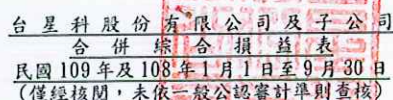 台星科股份有限公司及子公司
合併綜合損益表
民國109年及108年1月1日至9月30日
(僅經核閱,未依一般公認審計準則查核)